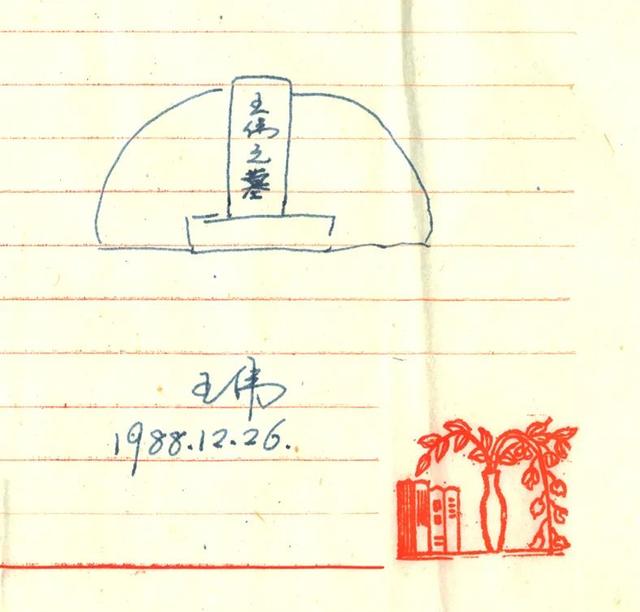 王伟之墓
王伟
1988.12.26.